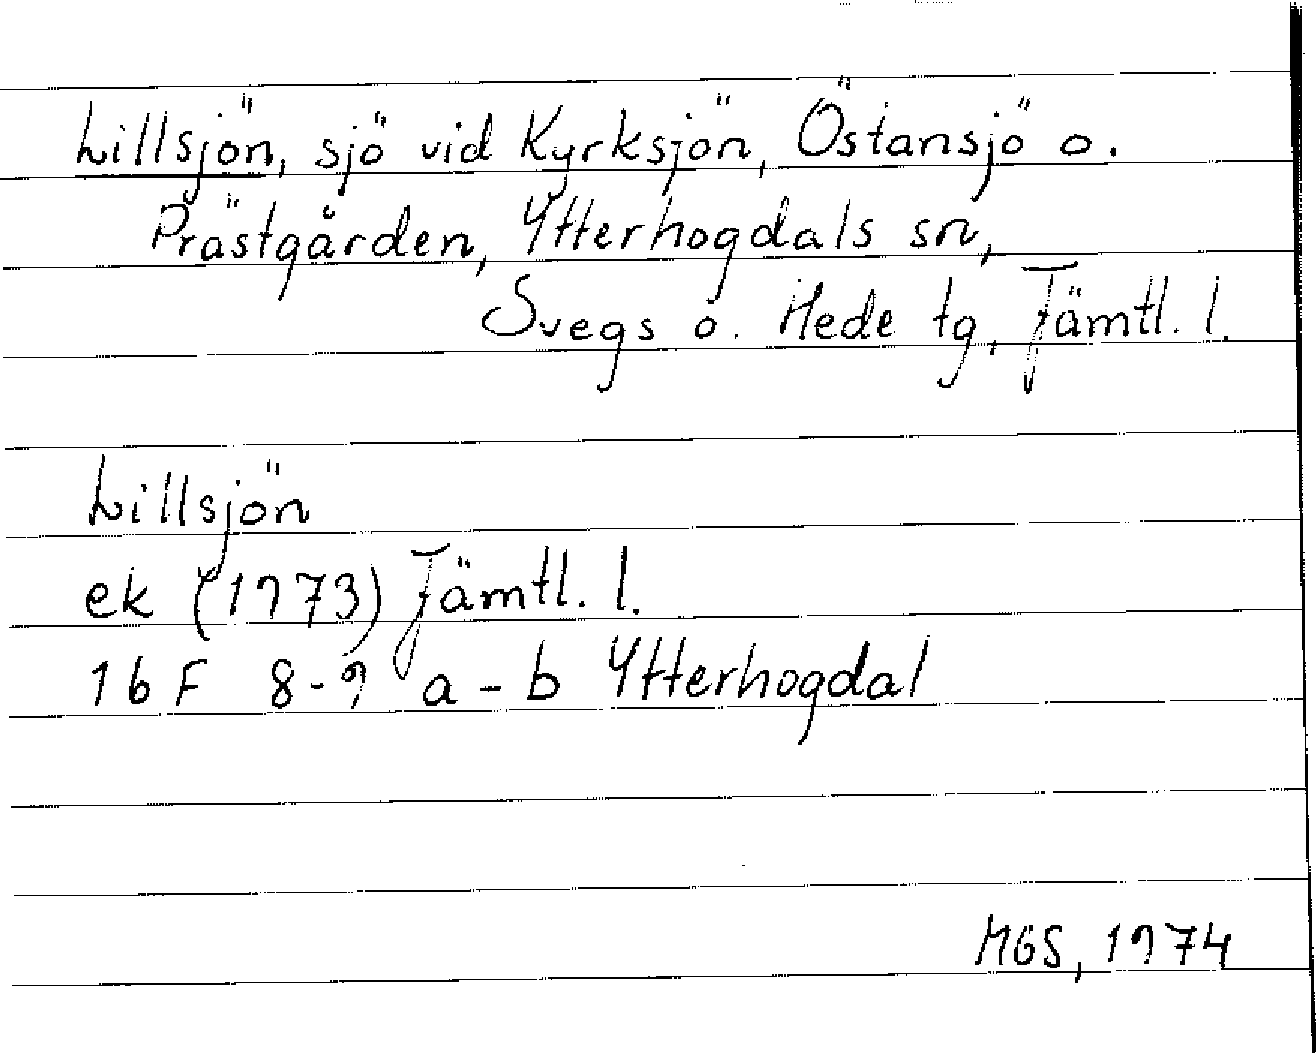 Lillsjön, sjö vid Kyrksjön, Östansjö o.
Prästgården, Ytterhogdals sn,
Svegs o. Hede tg, Jämtl. l.
Lillsjön
ek (1973) Jämtl. l.
16 F 8-9 a-b Ytterhogdal
MGS, 1974